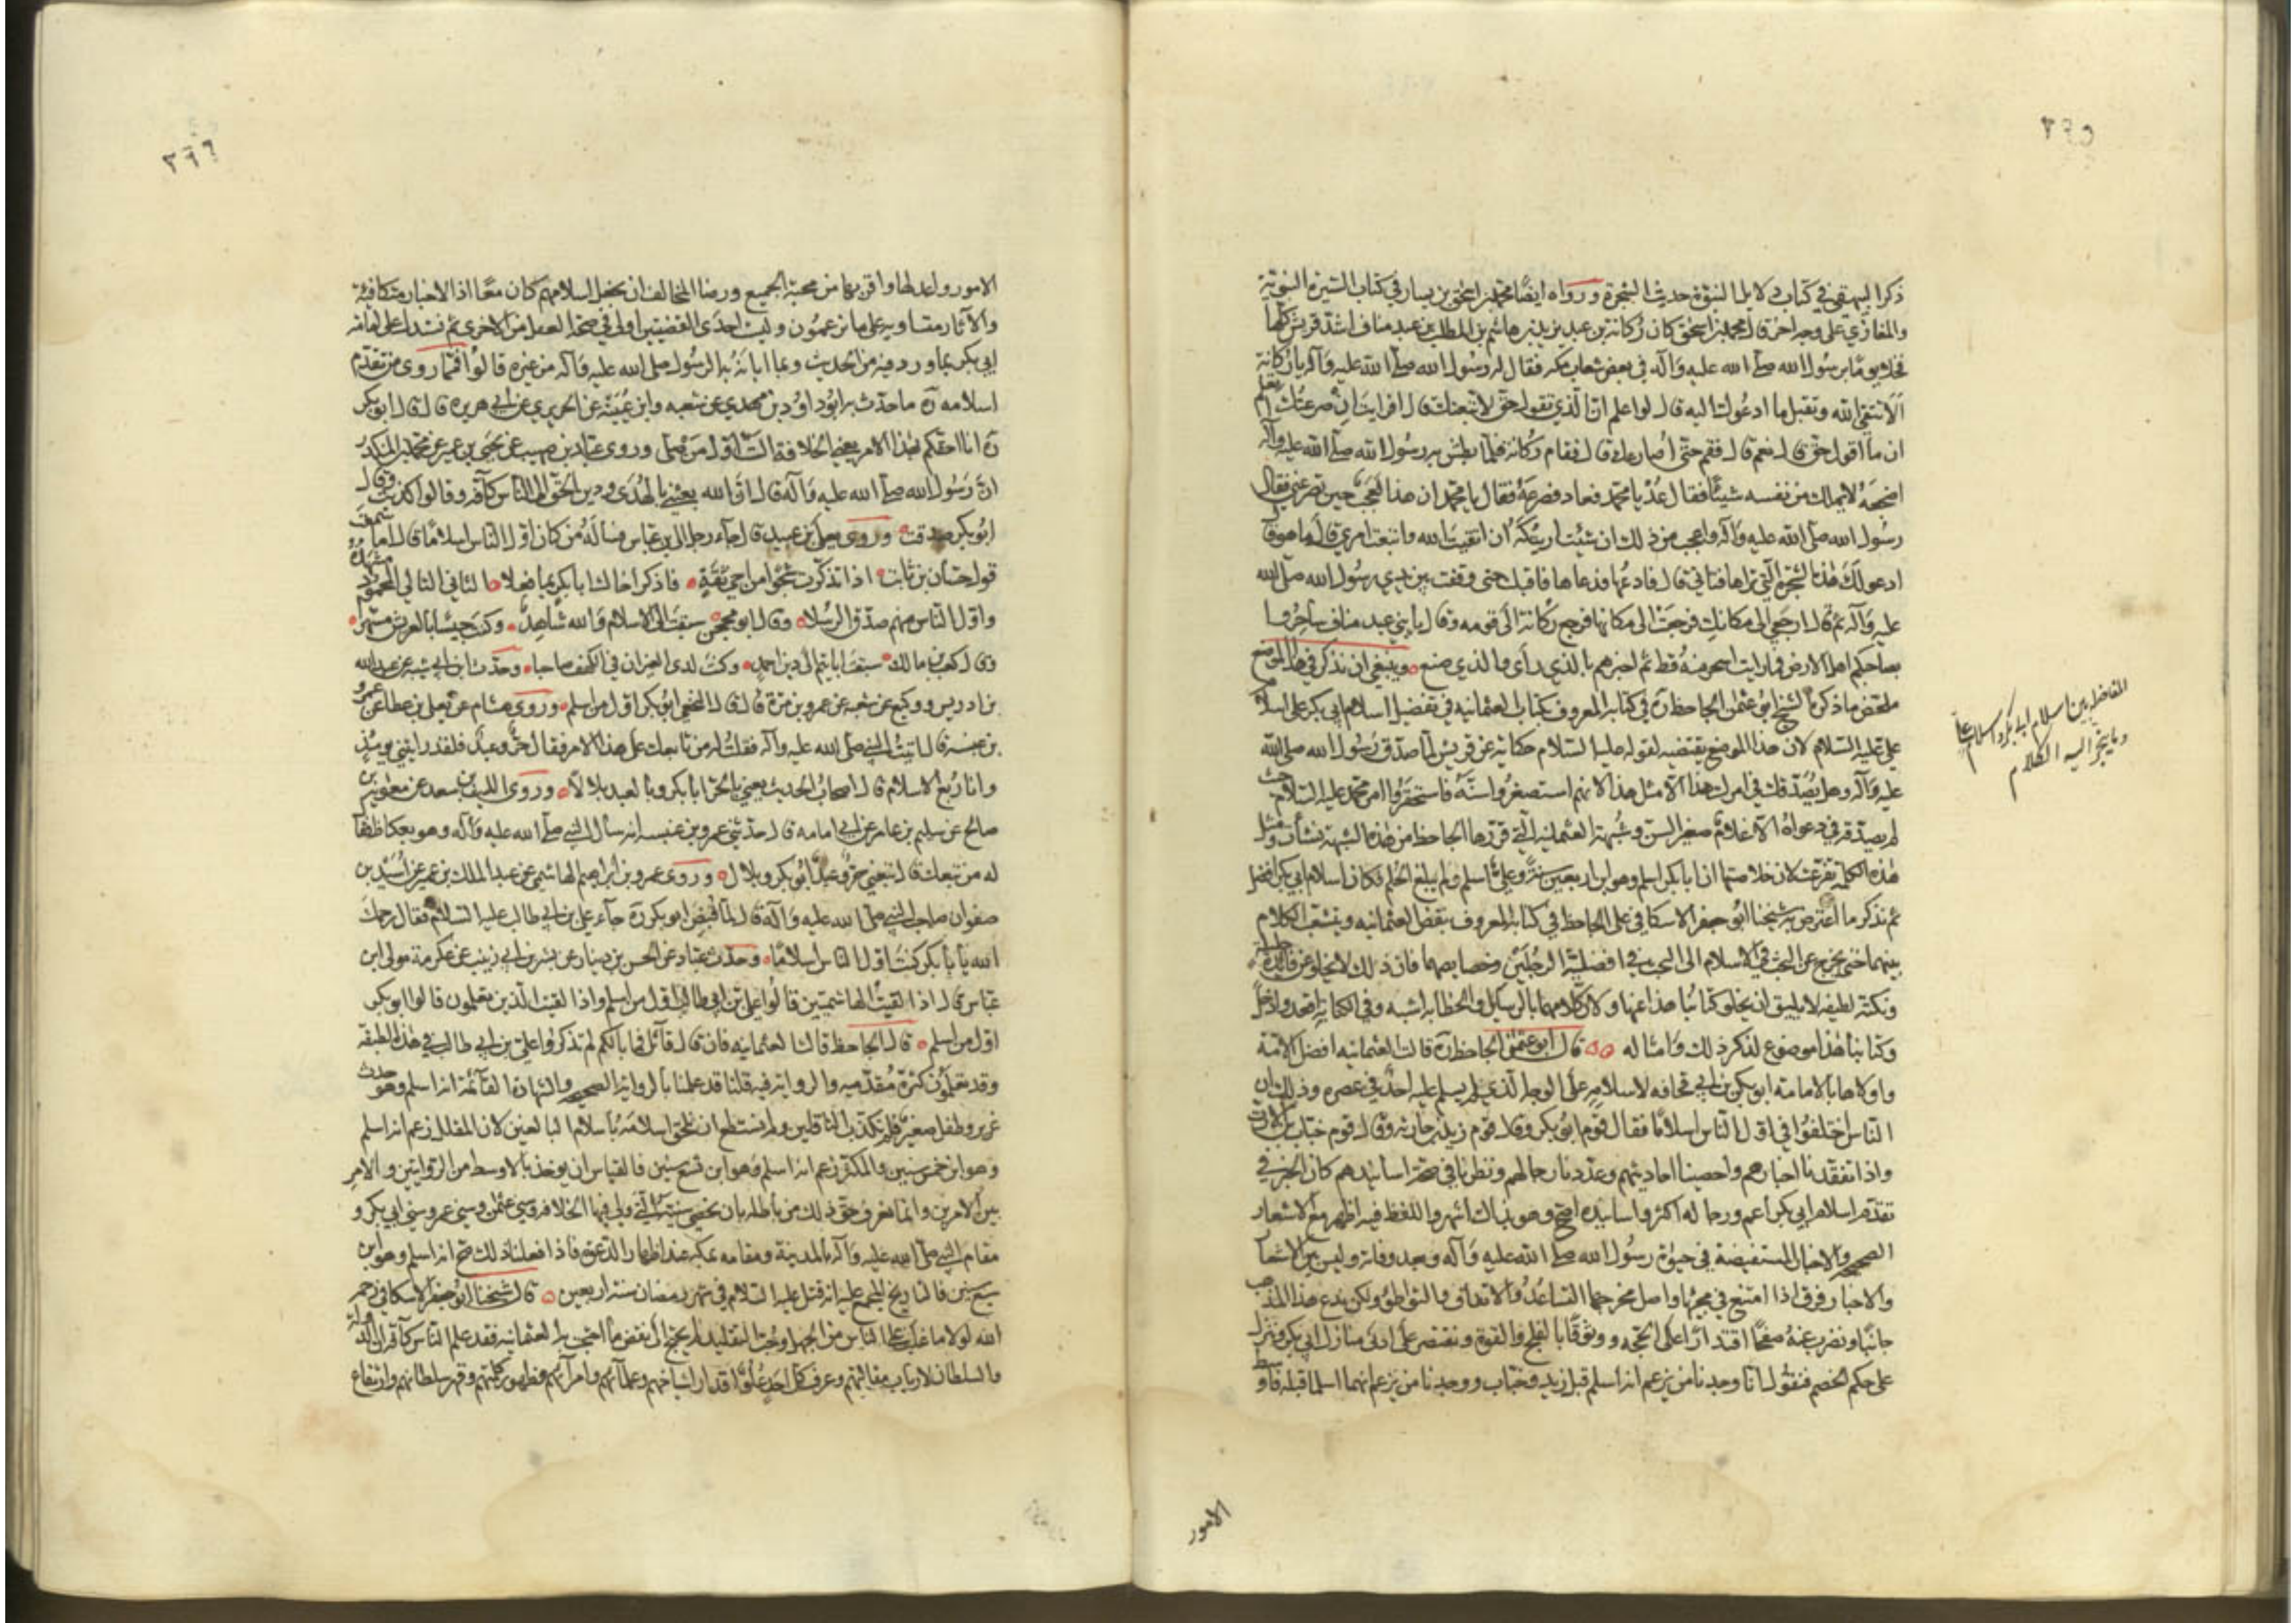 ٢٦٥
ذكر البيهقي في كتاب دلائل النبوة حديث الشجرة ورواه ايضا محمد بن اسحق بن يسار في كتاب السيرة النبوية
والمغازي على وجه اخر قال محمد بن اسحق كان ركانة بن عبد يزيد بن هاشم بن المطلب بن عبد مناف اشد قريش كلها
فخلا يوما برسول الله صلى الله عليه وآله في بعض شعاب مكه فقال له رسول الله صلى الله عليه وآله يا ركانة
الا تتقي الله وتقبل ما ادعوك اليه قال لو اعلم ان الذي تقول حق لاتبعتك قال افرايت ان صرعتك اتعلم
ان ما اقول حق قال نعم قال فقم حتى اصارعك قال فقام ركانة فلما بطش به رسول الله صلى الله عليه وآله
اضجعه لا يملك من نفسه شيئا فقال عد يا محمد فعاد فصرعه فقال يا محمد ان هذا لعجب حين تصرعني فقال
رسول الله صلى الله عليه وآله واعجب من ذلك ان شئت اريتكه ان اتقيت الله واتبعت امري قال ما هو قال
ادعو لك هذه الشجرة التي تراها فتاتي قال فادعها فدعاها فاقبلت حتى وقفت بين يدي رسول الله صلى الله
عليه وآله ثم قال ارجعي الى مكانك فرجعت الى مكانها فرجع ركانة الى قومه وقال يا بني عبد مناف ساحروا
بصاحبكم اهل الارض فما رايت اسحر منه قط ثم اخبرهم بالذي رأى والذي صنع وينبغي ان نذكر في هذا الموضع
ملخص ما ذكره الشيخ ابو عثمن الجاحظ ره في كتابه المعروف بكتاب العثمانيه في تفضيل اسلام ابي بكر على اسلام
علي عليه السلام لان هذا الموضع يقتضيه لقوله عليه السلام حكاية عن قريش لما صدق رسول الله صلى الله
عليه وآله وهل يصدقك في امرك هذا الا مثل هذا لانهم استصغروا سنه فاستحقروا امر محمد عليه السلام حيث
لم يصدقه في دعواه الا غلام صغير السن وشبهة العثمانية التي قررها الجاحظ من هذه الشبهة نشأت ومن
هذه الكلمة تفرعت لان خلاصتها ان ابا بكر اسلم وهو ابن اربعين سنة وعلي اسلم ولم يبلغ الحلم فكان اسلام ابي بكر افضل
ثم نذكر ما اعترض به شيخنا ابو جعفر الاسكافي على الجاحظ في كتابه المعروف بنقض العثمانيه ويتشعب الكلام
بينهما حتى يخرج عن البحث في الاسلام الى البحث في افضلية الرجلين وخصايصهما فان ذلك لا يخلو عن فائدة جليلة
ونكتة لطيفه لا يليق ان يخلو كتابنا هذا عنها ولان كلامهما بالرسايل والخطابه اشبه وفي الكتابة اقصد وادخل
وكتابنا هذا موضوع لذكر ذلك وامثاله قال ابو عثمن الجاحظ ره قالت العثمانيه افضل الامة
واولاها بالامامة ابو بكر بن ابي قحافه لاسلامه على الوجه الذي لم يسلم عليه احد في عصره وذلك ان
الناس اختلفوا في اول الناس اسلاما فقال قوم ابو بكر وقال قوم زيد بن حارثه وقال قوم خباب بن الارت
واذا تفقدنا اخبارهم واحصينا احاديثهم وعددنا رجالهم ونظرنا في صحة اسانيدهم كان الخبر في
تقدم اسلام ابي بكر اعم ورجاله اكثر واسانيده اصح وهو بذاك اشهر واللفظ فيه اظهر مع الاشعار
الصحيحه والاخبار المستفيضة في حيوة رسول الله صلى الله عليه وآله وبعد وفاته وليس بين الاشعار
والاخبار فرق اذا امتنع في مجيها واصل مخرجها التساعد والاتفاق والتواطؤ ولكن ندع هذا المذهب
جانبا ونضرب عنه صفحا اقتدارا على الحجه ووثوقا بالفلج والقوة ونقتصر على ادنى منازل ابي بكر وننزل
على حكم الخصم فنقول انا وجدنا من يزعم انه اسلم قبل زيد وخباب ووجدنا من يزعم انهما اسلما قبله فاوسط
المفاضلة بين اسلام ابي بكر واسلام علي
وما ينجر اليه الكلام
الامور
٢٦٦
الامور واعدلها واقربها من محبة الجميع ورضا المخالف ان نجعل اسلامهم كان معا اذ الاخبار متكافئة
والآثار متساويه على ما يزعمون وليت احدى القضيتين اولى في صحة العقل من الاخرى ثم نستدل على امامة
ابي بكر بما ورد فيه من الحديث وبما ابانه به الرسول صلى الله عليه وآله من غيره قالوا فمما روى من تقدم
اسلامه ره ما حدث به ابو داود بن مهدي عن شعبه وابن عيينه عن الجريري عن ابي هريره قال قال ابو بكر
ره انا احقكم بهذا الامر يعني الخلافة الست اول من صلى وروى عباد بن صهيب عن يحيى بن عمير عن محمد بن المنكدر
ان رسول الله صلى الله عليه وآله قال ان الله بعثني بالهدى ودين الحق الى الناس كافه وقالوا كذبت وقال
ابو بكر صدقت وروى يعلى بن عبيد قال جاء رجل الى بن عباس فسأله من كان اول الناس اسلاما قال اما سمعت
قول حسان بن ثابت اذا تذكرت شجوا من اخي ثقة فاذكر اخاك ابا بكر بما فعلا الثاني التالي المحمود مشهده
واول الناس منهم صدق الرسلا وقال ابو محجن سبقت الى الاسلام والله شاهد وكنت جليسا بالعريش المشهر
وقال كعب بن مالك سبقت اخا تيم الى دين احمد وكنت لدى الغيران في الكهف صاحبا وحدث ابن ابي شيبه عن عبد الله
بن ادريس ووكيع عن شعبه عن عمرو بن مرة قال قال النخعي ابو بكر اول من اسلم وروى هشام عن يعلى بن عطا عن عمرو
بن عبسه قال اتيت النبي صلى الله عليه وآله فقلت له من تابعك على هذا الامر فقال حر وعبد فلقد رايتني يومئذ
وانا ربع الاسلام قال اصحاب الحديث يعني بالحر ابا بكر وبالعبد بلالا وروى الليث بن سعد عن معوية بن
صالح عن سليم بن عامر عن ابي امامه قال حدثني عمرو بن عنبسه انه سأل النبي صلى الله عليه وآله وهو بعكاظ فقال
له من تبعك قال تبعني حر وعبد ابو بكر وبلال وروى عمرو بن ابراهيم الهاشمي عن عبد الملك بن عمير عن اسيد بن
صفوان صاحب النبي صلى الله عليه وآله قال لما قبض ابو بكر ره جاء علي بن ابي طالب عليه السلام فقال رحمك
الله يا ابا بكر كنت اول الناس اسلاما وحدث عباد عن الحسن بن دينار عن بشر بن ابي زينب عن عكرمة مولى ابن
عباس قال اذا لقيت الهاشميين قالوا علي بن ابي طالب اول من اسلم واذا لقيت الذين يعلمون قالوا ابو بكر
اول من اسلم قال الجاحظ قالت العثمانيه فان قال قائل فما بالكم لم تذكروا علي بن ابي طالب في هذه الطبقه
وقد تعلمون كثرة مقدميه والرواية فيه قلنا قد علمنا بالرواية الصحيحه والشهادة القائمة انه اسلم وهو حدث
غرير وطفل صغير فلم نكذب الناقلين ولم نستطع ان نلحق اسلامه باسلام البالغين لان المقلل زعم انه اسلم
وهو ابن خمس سنين والمكثر زعم انه اسلم وهو ابن تسع سنين فالقياس ان يوخذ بالاوسط من الروايتين وبالامر
بين الامرين وانما يعرف حق ذلك من باطله بان نحصي سنيه التي ولي فيها الخلافه وسني عثمن وسني عمر وسني ابي بكر و
مقام النبي صلى الله عليه وآله بالمدينة ومقامه بمكه عند اظهار الدعوة فاذا فعلنا ذلك صح انه اسلم وهو ابن
سبع سنين فالتاريخ المجمع عليه انه قتل عليه السلام في شهر رمضان سنة اربعين قال شيخنا ابو جعفر الاسكافي رحمه
الله لولا ما غلب على الناس من الجهل وحب التقليد لم يحتج الى نقض ما احتجت به العثمانيه فقد علم الناس كافة ان الدولة
والسلطان لارباب مقالتهم وعرف كل احد علو اقدار اشياخهم وعلمائهم وامرائهم وظهور كلمتهم وقهر سلطانهم وارتفاع